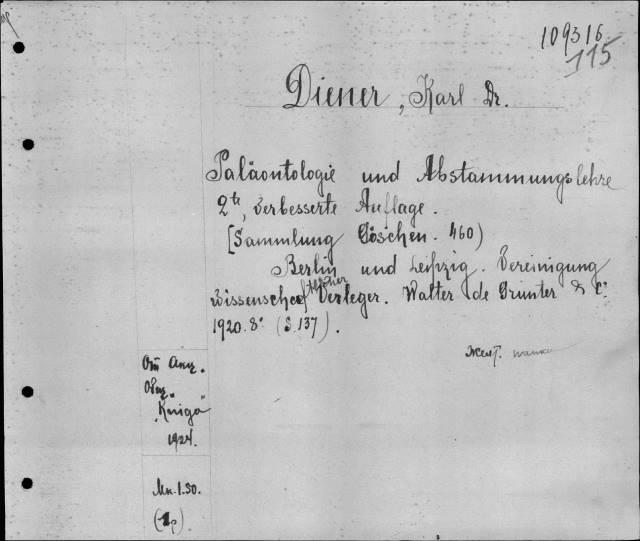 109316
115
Diener, Karl Dr.
Paläontologie und Abstammungslehre
2te, verbesserte Auflage.
[Sammlung Göschen. 460)
Berlin und Leipzig. Vereinigung
wissenschaftlicher Verleger. Walter de Grunter & C°
1920. 8° (S. 137).
Желт.
От Акц.
Общ.
"Книга"
1924.
Мк. 1.50.